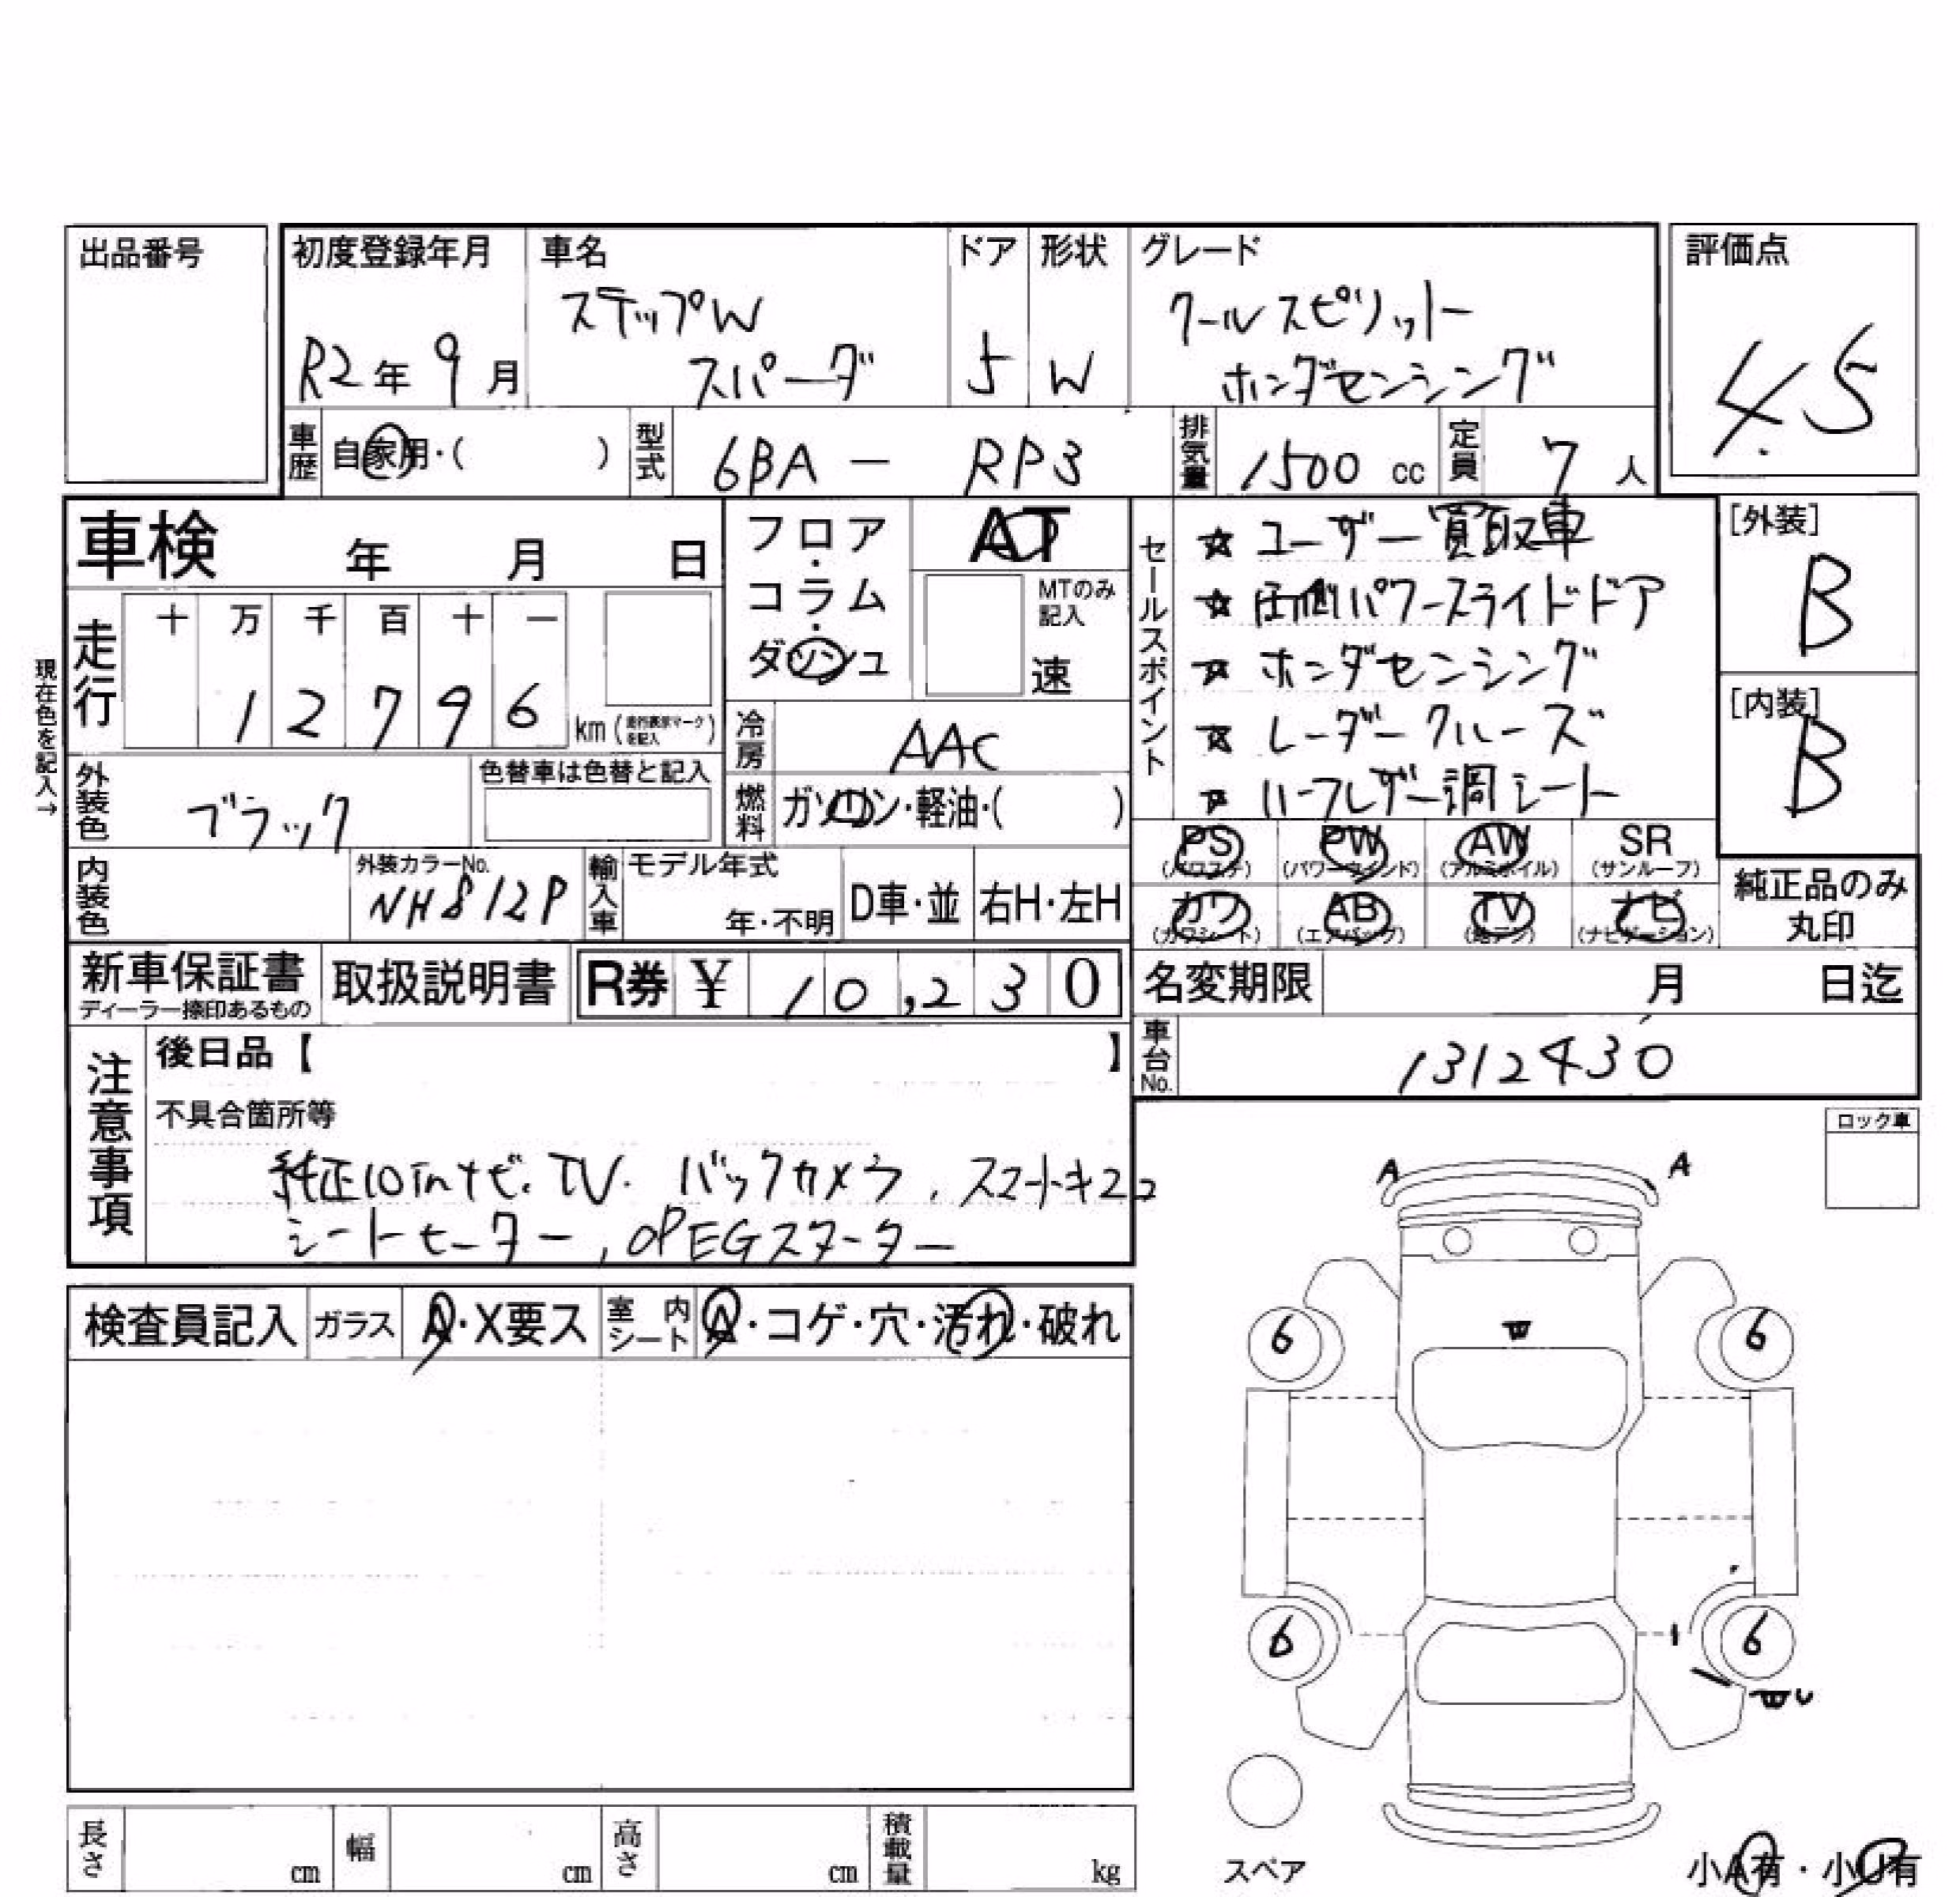 出品番号
初度登録年月
R2年9月
車名
ステップW
スパーダ
ドア
5
形状
W
グレード
クールスピリット
ホンダセンシング
評価点
4.5
車歴
自家用・( )
型式
6BA - RP3
排気量
1500 cc
定員
7人
車検 年 月 日
現在色を記入→
走行
十 万 千 百 十 一
1 2 7 9 6
km (走行表示マークを記入)
フロア・コラム・ダッシュ
AT
MTのみ記入
速
冷房
AAC
燃料
ガソリン・軽油・( )
セールスポイント
☆ ユーザー買取車
☆ 両側パワースライドドア
☆ ホンダセンシング
☆ レーダークルーズ
☆ ハーフレザー調シート
[外装]
B
[内装]
B
外装色
ブラック
色替車は色替と記入
内装色
外装カラーNo.
NH812P
輸入車
モデル年式
年・不明
D車・並
右H・左H
PS
(パワステ)
PW
(パワーウインド)
AW
(アルミホイル)
SR
(サンルーフ)
カワ
(カワシート)
AB
(エアバック)
TV
(地デジ)
ナビ
(ナビゲーション)
純正品のみ
丸印
新車保証書
ディーラー捺印あるもの
取扱説明書
R券 ¥ 10,230
名変期限 月 日迄
車台No.
1312430
注意事項
後日品【 】
不具合箇所等
純正10inナビ. TV. バックカメラ, スマートキー2コ
シートヒーター, OPEGスターター
ロック車
検査員記入
ガラス
A・X要ス
室内シート
A・コゲ・穴・汚れ・破れ
A A
6 6
W
6 6
WU
スペア
小A有・小U有
長さ cm
幅 cm
高さ cm
積載量 kg